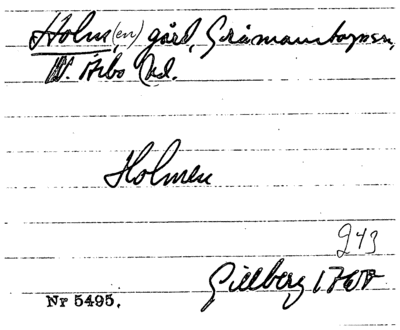 Holm(en), gård, Gråmanstorpsn,
N. Åsbo hd.
Holmen
943
Gillberg 1767
Nr 5495.